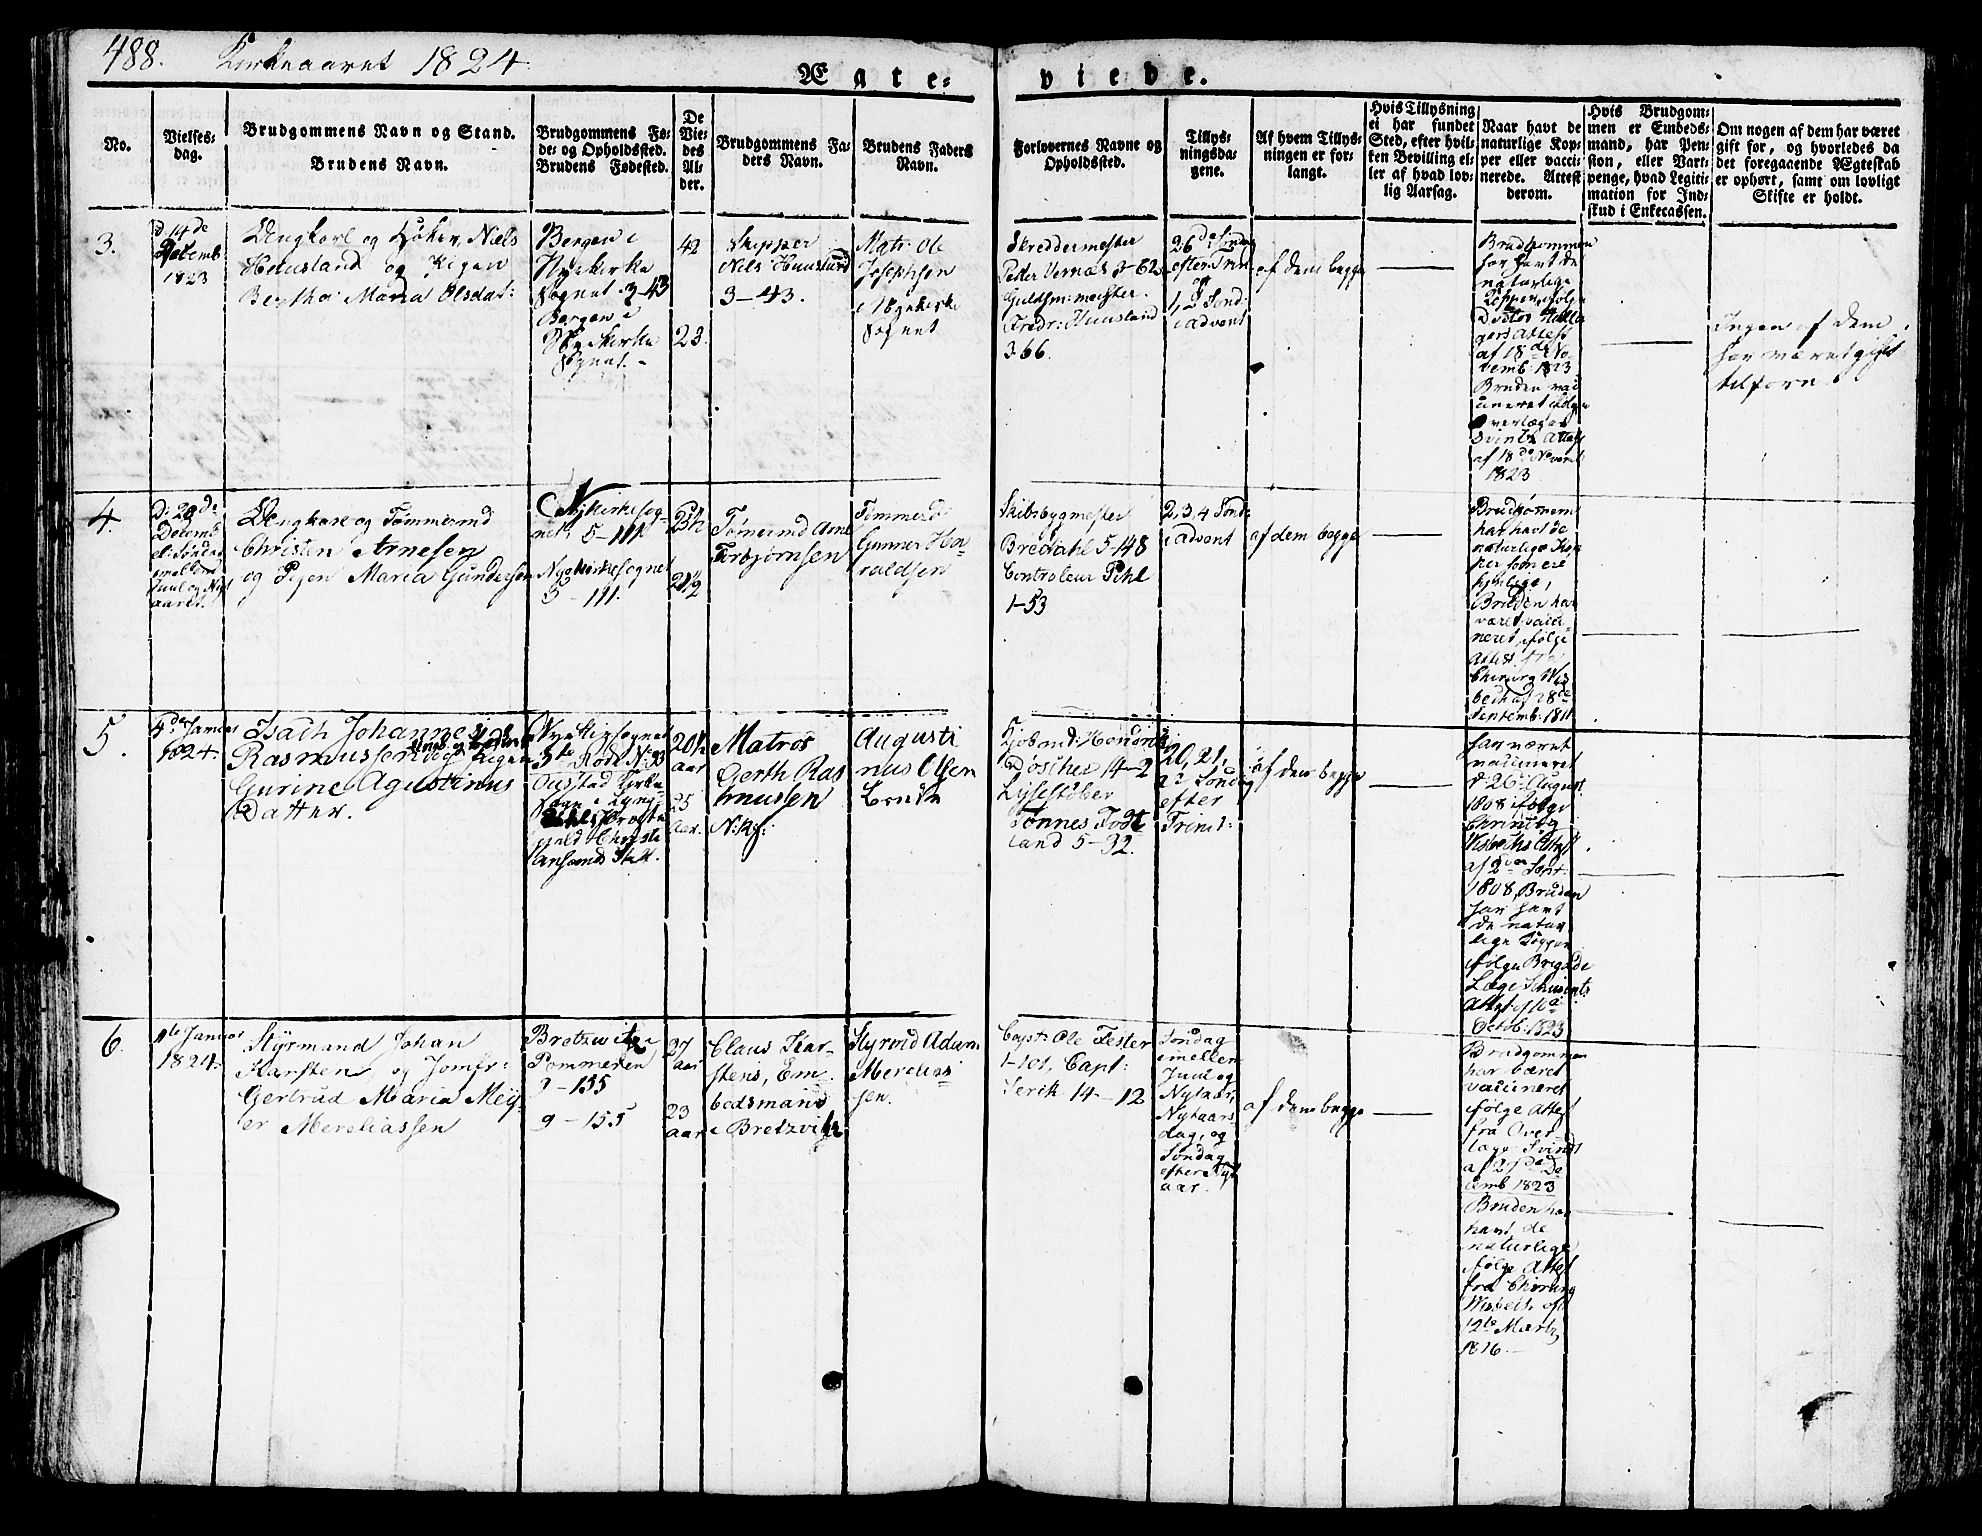 488. Kirkeaaret 1824.
Ægte- viede.
No.
Vielses-
dag.
Brudgommens Navn og Stand.
Brudens Navn.
Brudgommens Fø-
de- og Opholdssted.
Brudens Fødested.
De
Vie-
des
Al-
der.
Brudgommens Fa-
ders Navn.
Brudens Faders
Navn.
Forlovernes Navne og
Opholdssted.
Tillys-
ningsda-
gene.
Af hvem Tillys-
ningen er for-
langt.
Hvis Tillysning
ei har fundet
Sted, efter hvil-
ken Bevilling el-
ler af hvad lov-
lig Aarsag.
Naar havt de
naturlige Kop-
per eller vacci-
nerede. Attest
derom.
Hvis Brudgom-
men er Embeds-
mand, har Pen-
sion, eller Vart-
penge, hvad Legiti-
mation for Ind-
skud i Enkecassen.
Om nogen af dem har været
gift før, og hvorledes da
det foregaaende Ægteskab
er ophørt, samt om lovligt
Skifte er holdt.
3.
d 14de
Decemb
1823
Ungkarl og Høker, Niels
Huusland og Pigen
Berthe Maria Olsdat:
Bergen i
Nyekirke
Sognet 3-43
Bergen i
Nyekirke
Sognet.-
42
23.
Skipper
Niels Huusland
3-43.
Mgtr: Ole
Josephsen
i Nyekirke
Sognet
Skreddermester
Peder Vernaas 3-62
Guldsm:mester
Fredr: Huusland
366.
26de Søndag
efter Trin:
og
1, 2 Sønd:
i Advent
af dem begge
Brudgommen
har havt de
naturlige
Kopper, ifølge
Doctor
Attest
af 18de No-
vemb: 1823
Bruden vac-
cineret ifølge
Overlæge
Svindts Attest
af 18de Novemb:
1823
Ingen af dem
har været gift
tilforn.
4.
D: 28de
Decemb
el: Søndag
mellem
Juul og Nyt
aaret.
Ungkarl og Tømmermd
Christen Arnesen
og Pigen Maria Gundersen
Nykirkesog-
net, 5-111.
Nyekirkesognet
5-111.
25½
21½
Tømermd Arne
Torbjørnsen
Tømmermd
Gunner Ha-
raldsen
Skibsbygmester
Bredahl 5-148
Controleur Pihl
1-53
2, 3, 4 Sønd:
i Advent
af dem begge
Brudgommen
har havt de
naturlige Kop-
per som ere
synlige,
Bruden har
været vacci-
neret, ifølge
Attest fra
Chirurg Wis-
bech af 28de
Septemb: 1811
5.
4de Januar
1824.
Isach Johannes
Rasmussen og Pigen
Gurine Agustinus
Datter.
Nye Kirkesognet
5te Rode No: 33
20½
aar
25
Aar.
Matros
Gerth Ras
musssen
N:kg:
Augusti
nus Olsen
Bonde
Kjøbmd: Hendrich
Døscher 14-2
Lysestøber
Tønnes Todt
land 5-32.
20, 21,
22 Søndag
efter
Trinit:
af dem begge
har været
vaccineret
d: 26de August
1808 ifølge
Chirurg
Wisbechs Attest
af 2den Sept:
1808, Bruden
har havt
de natur
lige Kopper
ifølge Brigade
Læge Schwindts
Attest af 10de
Octob: 1823
6.
Januar
1824.
Styrmand Johan
Karsten, og Jomfr:
Gertrud Maria Mey-
er Mereliassen
Bretzwitz
Pommeren
9-155
9-155
27
aar
23
aar
Claus Kar-
stens, Em-
bedsmand
i Bretzvitz
Styrmd Adam
Merelias-
sen.
Capt: Ole Fester
1-101, Capt:
Serik 14-12
Søndag
imellem
Juul og
Nytaar,
Nytaars
dag, og
Søndag
efter Nyt
aar.
af dem begge
Brudgommen
har været
vaccineret
ifølge Attest
fra Over-
læge Svindt
af 21de De
cemb 1823
Bruden har
havt de
naturlige
ifølge Attest
fra Chirurg
Wisbech af
12te Marts
1816.